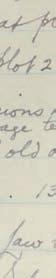 at p
plot 2
ions
age te
old o
. 13
Law